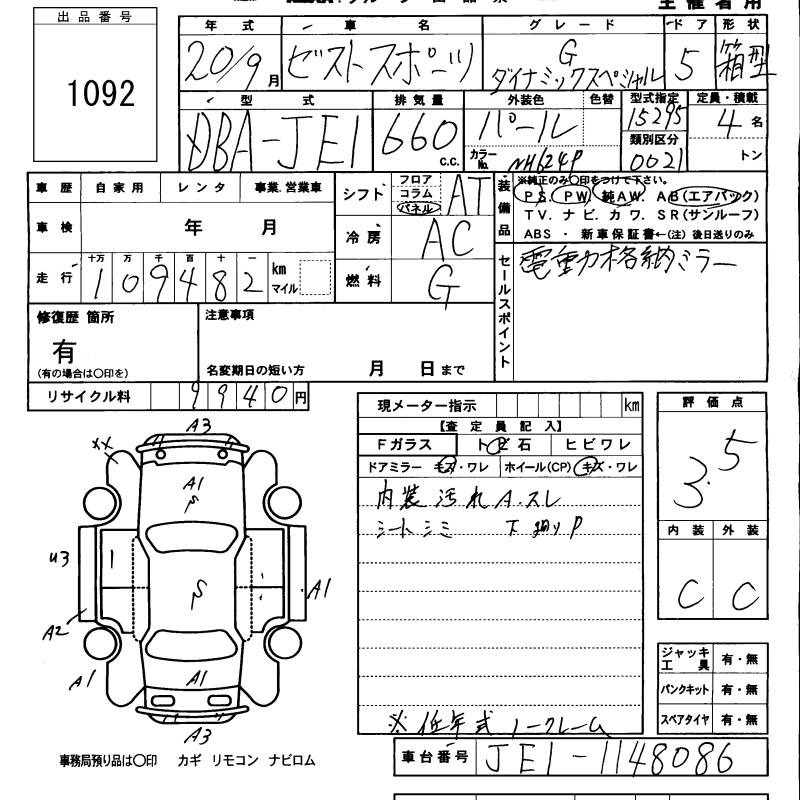 主催者用
出品番号
1092
年式 車名 グレード ドア 形状
20/9月 ゼストスポーツ G ダイナミックスペシャル 5 箱型
型式 排気量 外装色 色替 型式指定 定員・積載
DBA-JE1 660 c.c. パール 15295 4名
類別区分
カラーNo. NH624P 0021 トン
車歴 自家用 レンタ 事業.営業車
シフト フロア コラム パネル AT
装備品 ※純正のみ○印をつけて下さい。
PS. PW. 純AW. AB(エアバック)
TV. ナビ. カワ. SR(サンルーフ)
ABS ・ 新車保証書←(注)後日送りのみ
車検 年 月
冷房 AC
走行 十万 万 千 百 十 一
109482 km マイル
燃料 G
セールスポイント
電動格納ミラー
修復歴 箇所
有
(有の場合は○印を)
注意事項
名変期日の短い方 月 日まで
リサイクル料 9940円
現メーター指示 km
【査定員記入】
Fガラス トビ石 ヒビワレ
ドアミラー キズ・ワレ ホイール(CP) キズ・ワレ
内装汚れ A.スレ
シートシミ 下廻りP
※低年式 ノークレーム
評価点
3.5
内装 外装
C C
A3
XX
A1
S
U3
S
A1
A2
A1
A1
A3
ジャッキ工具 有・無
パンクキット 有・無
スペアタイヤ 有・無
事務局預り品は○印 カギ リモコン ナビロム
車台番号 JE1-1148086